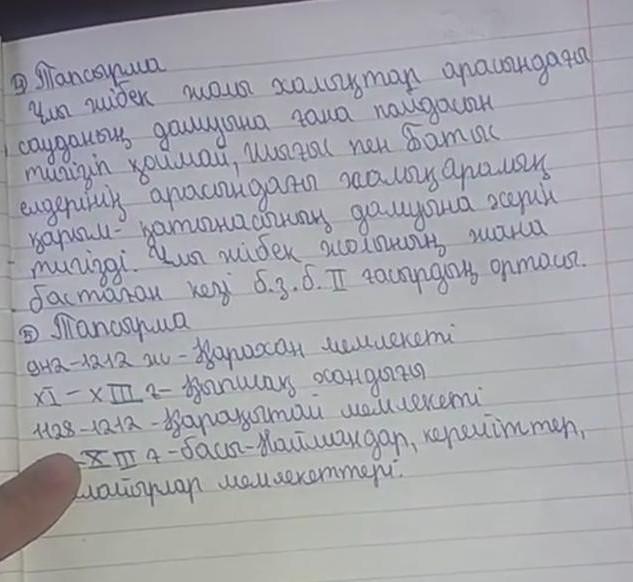 2) Тапсырма
Ұлы жібек жолы халықтар арасындағы
сауданың дамуына ғана пайдасын
тигізіп қоймай, Шығыс пен Батыс
елдерінің арасындағы халықаралық
қарым-қатынасының дамуына әсерін
тигізді. Ұлы жібек жолының жана
бастаған кезі б.з.б. II ғасырдың ортасы.
5) Тапсырма
942-1212 жж - Қарахан мемлекеті
XI - XIII ғ - Қыпшақ хандығы
1128-1212 - Қарақытай мемлекеті
-XIII ғ - басы - Наймандар, керейіттер,
жалайырлар мемлекеттері.